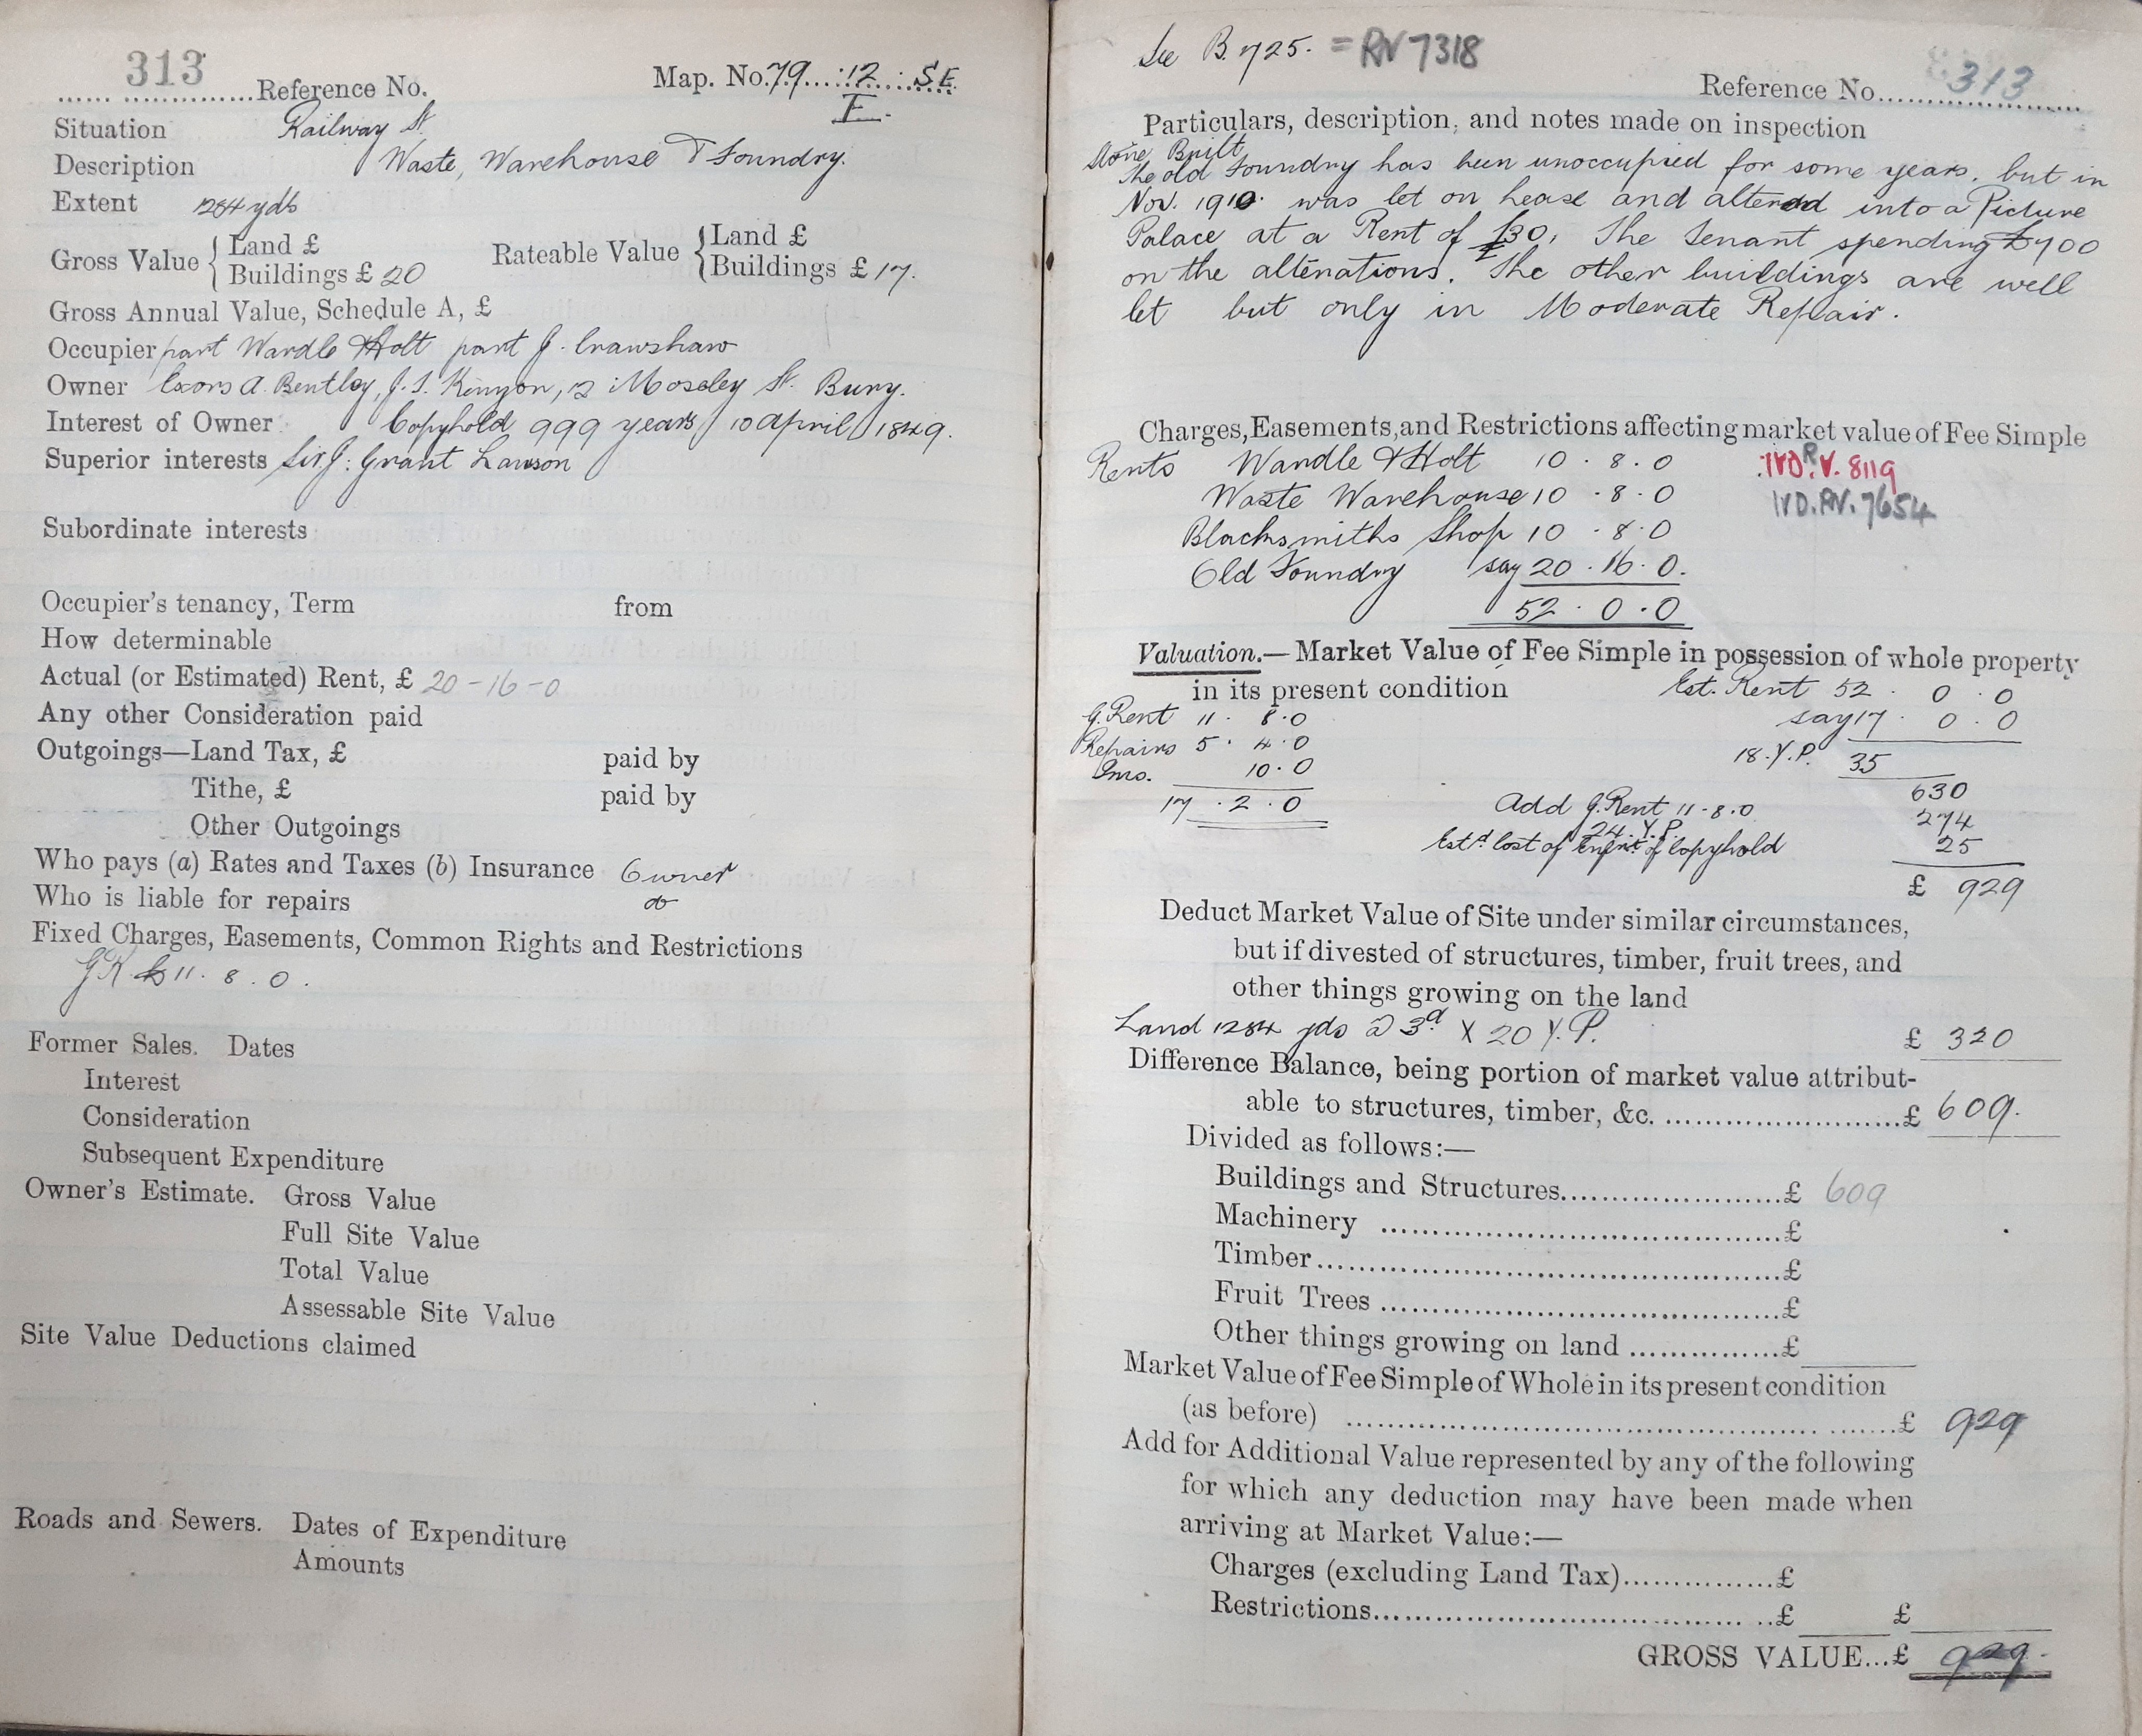 313 Reference No. Map. No. 79 : 12 : S.E.
I.
Situation Railway St.
Description Waste, Warehouse & Foundry.
Extent 1284 yds
Gross Value { Land £ Rateable Value { Land £
Buildings £ 20 Buildings £ 17.
Gross Annual Value, Schedule A, £
Occupier part Wardle & Holt part J. Crawshaw
Owner Exors A. Bentley, J. S. Kenyon, 12 Moseley St. Bury.
Interest of Owner Copyhold 999 years / 10 April / 1849.
Superior interests Sir J. Grant Lawson
Subordinate interests
Occupier's tenancy, Term from
How determinable
Actual (or Estimated) Rent, £ 20-16-0
Any other Consideration paid
Outgoings—Land Tax, £ paid by
Tithe, £ paid by
Other Outgoings
Who pays (a) Rates and Taxes (b) Insurance Owner
Who is liable for repairs do
Fixed Charges, Easements, Common Rights and Restrictions
G.R. £11. 8. 0.
Former Sales. Dates
Interest
Consideration
Subsequent Expenditure
Owner's Estimate. Gross Value
Full Site Value
Total Value
Assessable Site Value
Site Value Deductions claimed
Roads and Sewers. Dates of Expenditure
Amounts
See B.725. = RV 7318
Reference No. 313
Particulars, description, and notes made on inspection
Stone Built
The old Foundry has been unoccupied for some years, but in
Nov. 1910 was let on Lease and altered into a Picture
Palace at a Rent of £30, The Tenant spending £700
on the alterations. The other buildings are well
let but only in Moderate Repair.
Charges, Easements, and Restrictions affecting market value of Fee Simple
Rents Wardle & Holt 10 . 8 . 0 IVD.R.V. 8119
Waste Warehouse 10 . 8 . 0 IVD.RV. 7654
Blacksmiths Shop 10 . 8 . 0
Old Foundry say 20 . 16 . 0.
52 . 0 . 0
Valuation.—Market Value of Fee Simple in possession of whole property
in its present condition Est. Rent 52 . 0 . 0
G. Rent 11 . 8 . 0 say 17 . 0 . 0
Repairs 5 . 4 . 0 18. Y.P. 35
Ins. 10 . 0 630
17 . 2 . 0 Add G. Rent 11-8-0 274
24. Y.P.
Estd. Cost of Enfrt. of Copyhold 25
£ 929
Deduct Market Value of Site under similar circumstances,
but if divested of structures, timber, fruit trees, and
other things growing on the land
Land 1284 yds @ 3d. X 20 Y.P. £ 320
Difference Balance, being portion of market value attribut-
able to structures, timber, &c. £ 609.
Divided as follows:—
Buildings and Structures £ 609
Machinery £
Timber £
Fruit Trees £
Other things growing on land £
Market Value of Fee Simple of Whole in its present condition
(as before) £ 929
Add for Additional Value represented by any of the following
for which any deduction may have been made when
arriving at Market Value:—
Charges (excluding Land Tax) £
Restrictions £ £
GROSS VALUE...£ 929.